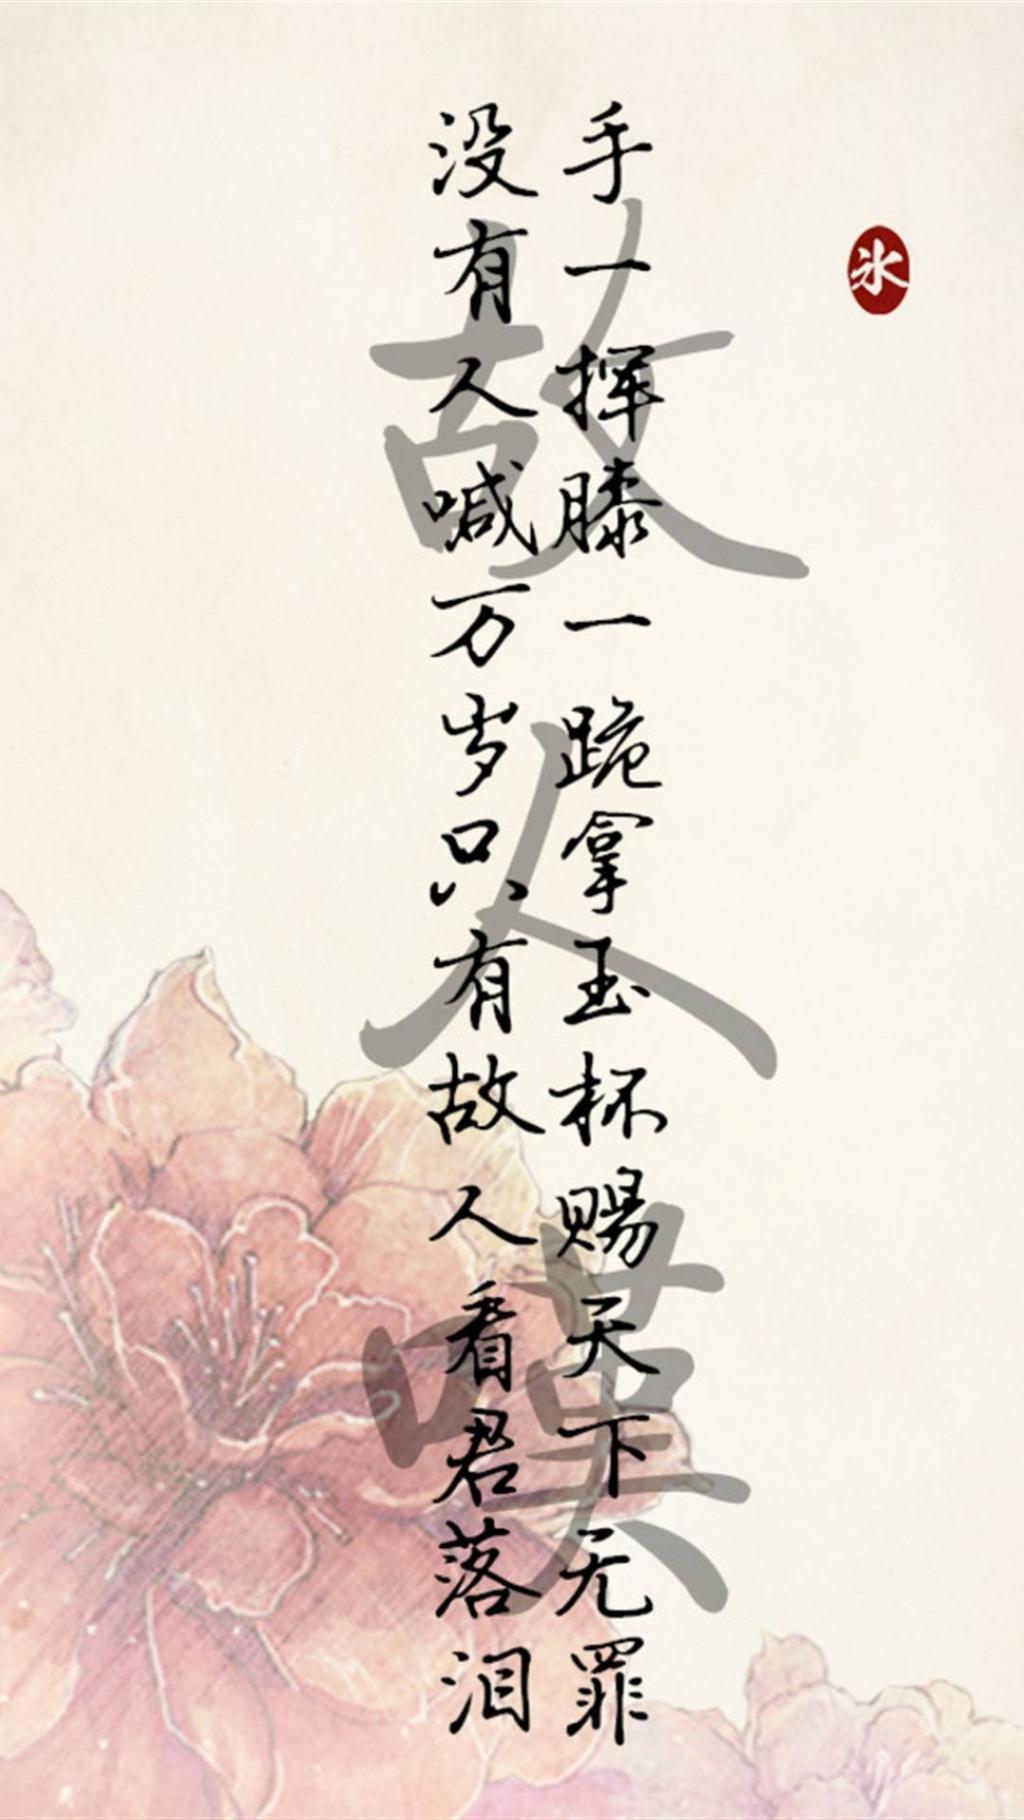 氷
手一挥膝一跪拿玉杯赐天下无罪
没有人喊万岁只有故人看君落泪
故人叹